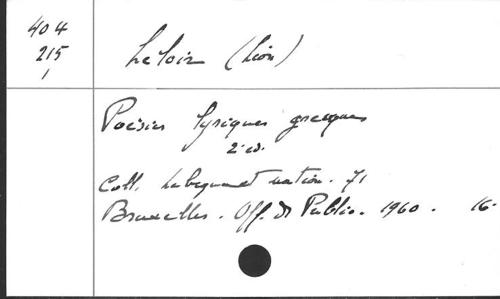 404
215
1
Leloir (Léon)
Poésies lyriques grecques
2e éd.
Coll. Lebègue et nation. 71
Bruxelles. Off. de Public. 1960. 16.